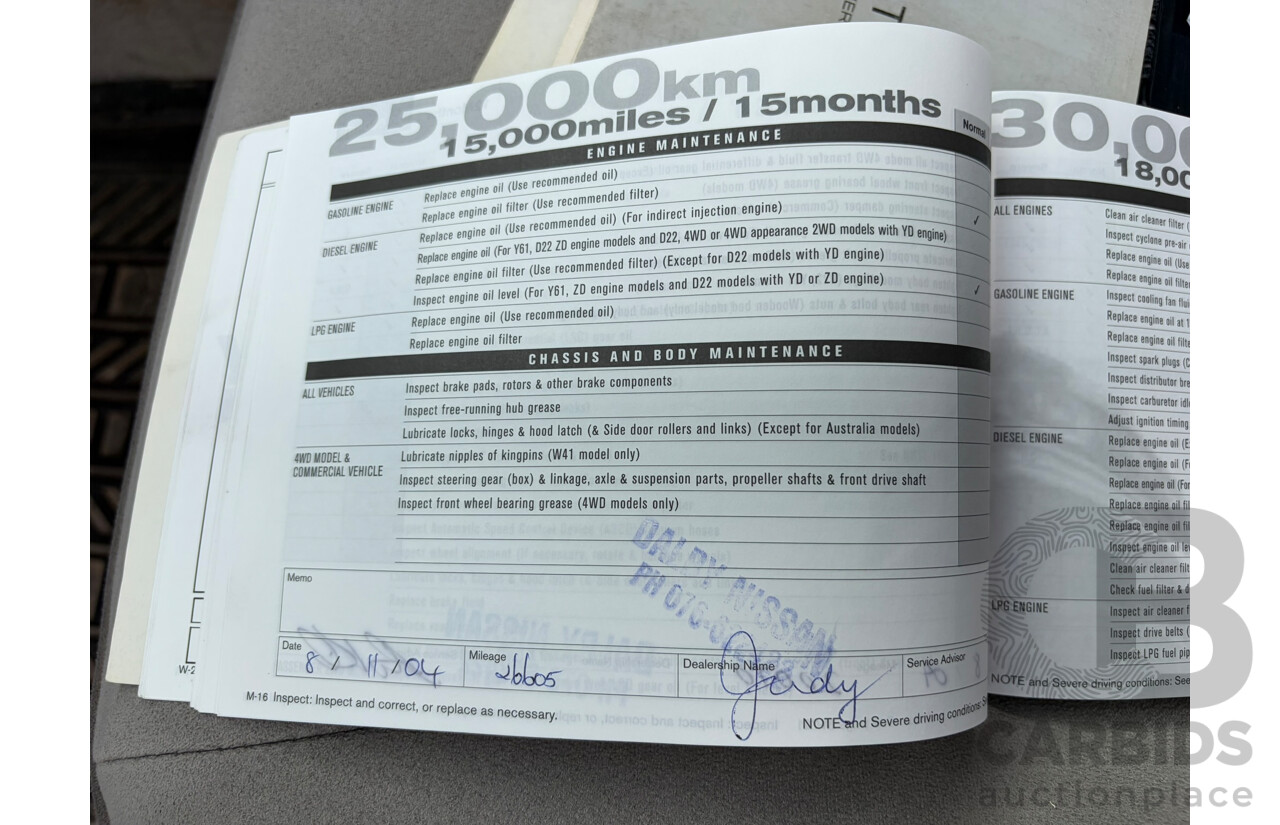 25,000km
15,000miles / 15months
Normal
ENGINE MAINTENANCE
GASOLINE ENGINE
Replace engine oil (Use recommended oil)
Replace engine oil filter (Use recommended filter)
DIESEL ENGINE
Replace engine oil (Use recommended oil) (For indirect injection engine)
✓
Replace engine oil (For Y61, D22 ZD engine models and D22, 4WD or 4WD appearance 2WD models with YD engine)
Replace engine oil filter (Use recommended filter) (Except for D22 models with YD engine)
Inspect engine oil level (For Y61, ZD engine models and D22 models with YD or ZD engine)
✓
LPG ENGINE
Replace engine oil (Use recommended oil)
Replace engine oil filter
CHASSIS AND BODY MAINTENANCE
ALL VEHICLES
Inspect brake pads, rotors & other brake components
Inspect free-running hub grease
Lubricate locks, hinges & hood latch (& Side door rollers and links) (Except for Australia models)
4WD MODEL &
COMMERCIAL VEHICLE
Lubricate nipples of kingpins (W41 model only)
Inspect steering gear (box) & linkage, axle & suspension parts, propeller shafts & front drive shaft
Inspect front wheel bearing grease (4WD models only)
DALBY NISSAN
Memo
Date
8/11/04
Mileage
26605
Dealership Name
Service Advisor
M-16 Inspect: Inspect and correct, or replace as necessary.
NOTE and Severe driving conditions:
30,0
18,00
ALL ENGINES
Clean air cleaner filter (
Inspect cyclone pre-air
Replace engine oil (Use
Replace engine oil filter
GASOLINE ENGINE
Inspect cooling fan flui
Replace engine oil at 1
Replace engine oil filte
Inspect spark plugs (C
Inspect distributor bre
Inspect carburetor idl
Adjust ignition timing
DIESEL ENGINE
Replace engine oil (E
Replace engine oil (F
Replace engine oil (For
Replace engine oil fil
Replace engine oil fil
Inspect engine oil le
Clean air cleaner filt
Check fuel filter & d
LPG ENGINE
Inspect air cleaner f
Inspect drive belts (
Inspect LPG fuel pip
NOTE and Severe driving conditions: See
W-2
CB
CARBIDS
auctionplace